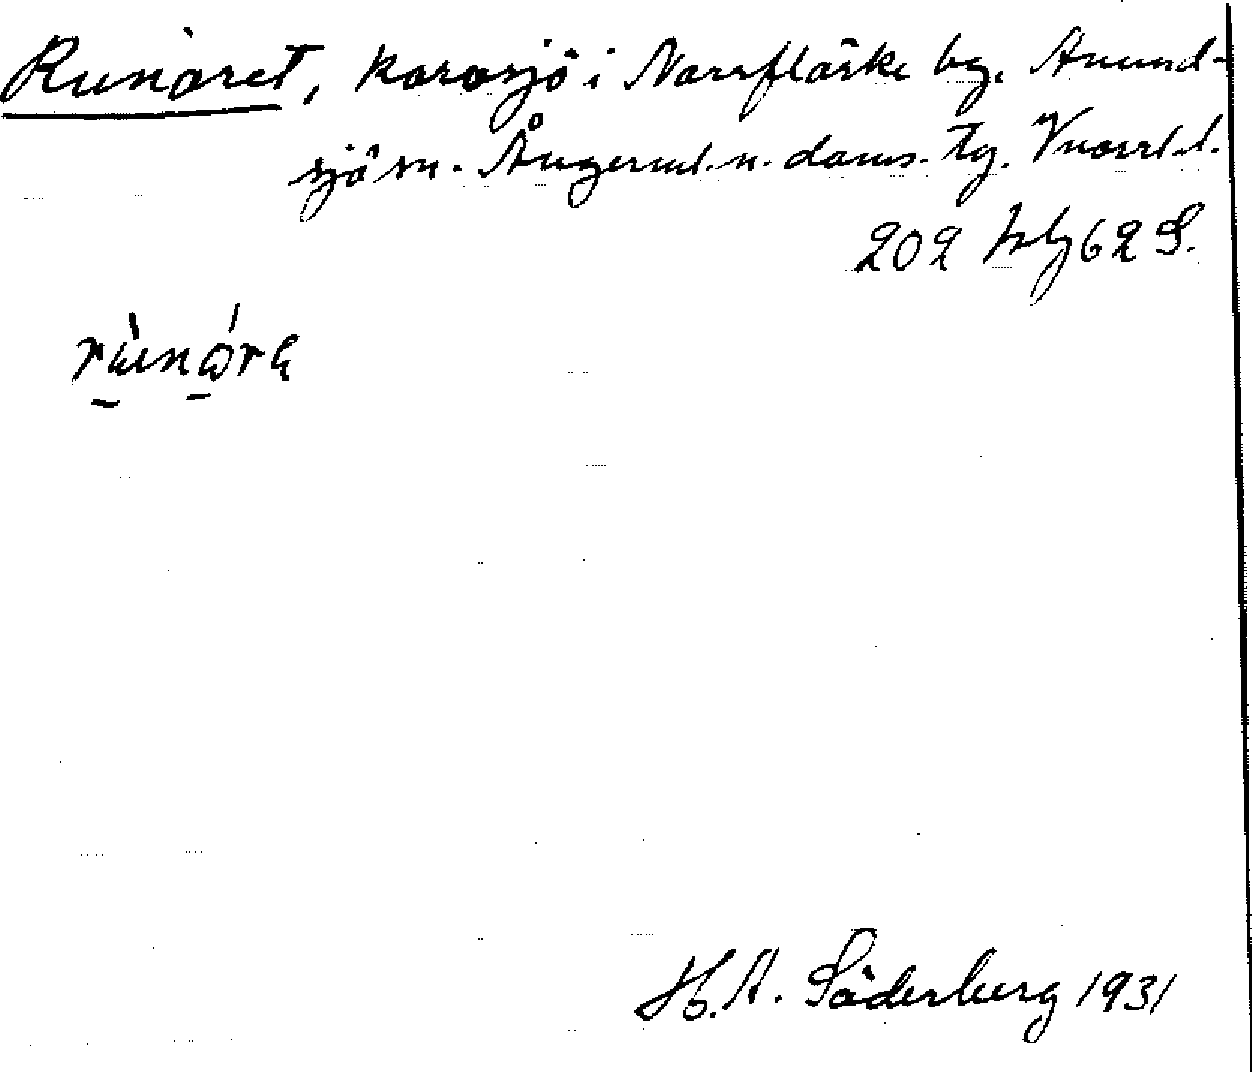 Runåret, karasjö i Norrflärke by, Anund-
sjö sn. Ångerml. n. doms. tg. Vnorrl.l.
202 hlj 62 S.
rùnǻra
H. A. Söderberg 1931